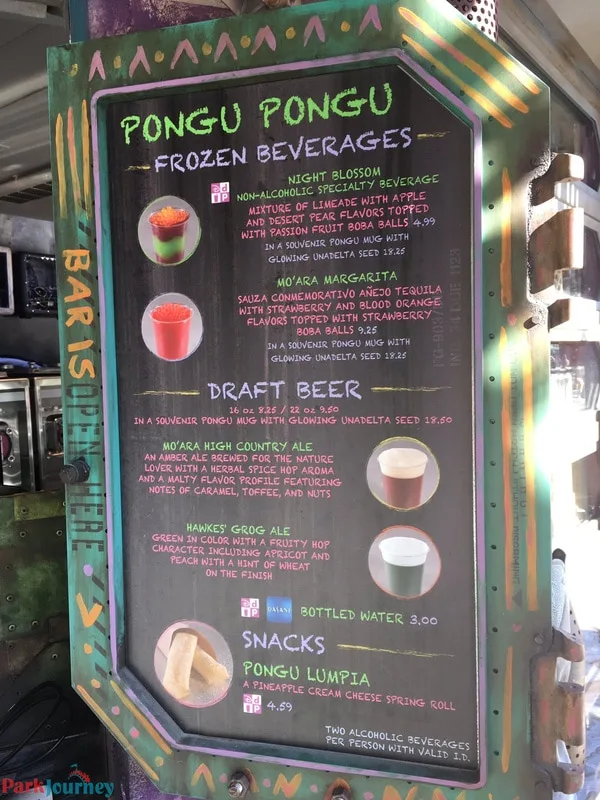 PONGU PONGU
FROZEN BEVERAGES
NIGHT BLOSSOM
NON-ALCOHOLIC SPECIALTY BEVERAGE
MIXTURE OF LIMEADE WITH APPLE
AND DESERT PEAR FLAVORS TOPPED
WITH PASSION FRUIT BOBA BALLS 4.99
IN A SOUVENIR PONGU MUG WITH
GLOWING UNADELTA SEED 18.25
MO'ARA MARGARITA
SAUZA CONMEMORATIVO AÑEJO TEQUILA
WITH STRAWBERRY AND BLOOD ORANGE
FLAVORS TOPPED WITH STRAWBERRY
BOBA BALLS 9.25
IN A SOUVENIR PONGU MUG WITH
GLOWING UNADELTA SEED 18.25
DRAFT BEER
16 oz 8.25 / 22 oz 9.50
IN A SOUVENIR PONGU MUG WITH GLOWING UNADELTA SEED 18.50
MO'ARA HIGH COUNTRY ALE
AN AMBER ALE BREWED FOR THE NATURE
LOVER WITH A HERBAL SPICE HOP AROMA
AND A MALTY FLAVOR PROFILE FEATURING
NOTES OF CARAMEL, TOFFEE, AND NUTS
HAWKES' GROG ALE
GREEN IN COLOR WITH A FRUITY HOP
CHARACTER INCLUDING APRICOT AND
PEACH WITH A HINT OF WHEAT
ON THE FINISH
DASANI BOTTLED WATER 3.00
SNACKS
PONGU LUMPIA
A PINEAPPLE CREAM CHEESE SPRING ROLL
4.59
TWO ALCOHOLIC BEVERAGES
PER PERSON WITH VALID I.D.
BAR IS
OPEN HERE
ParkJourney